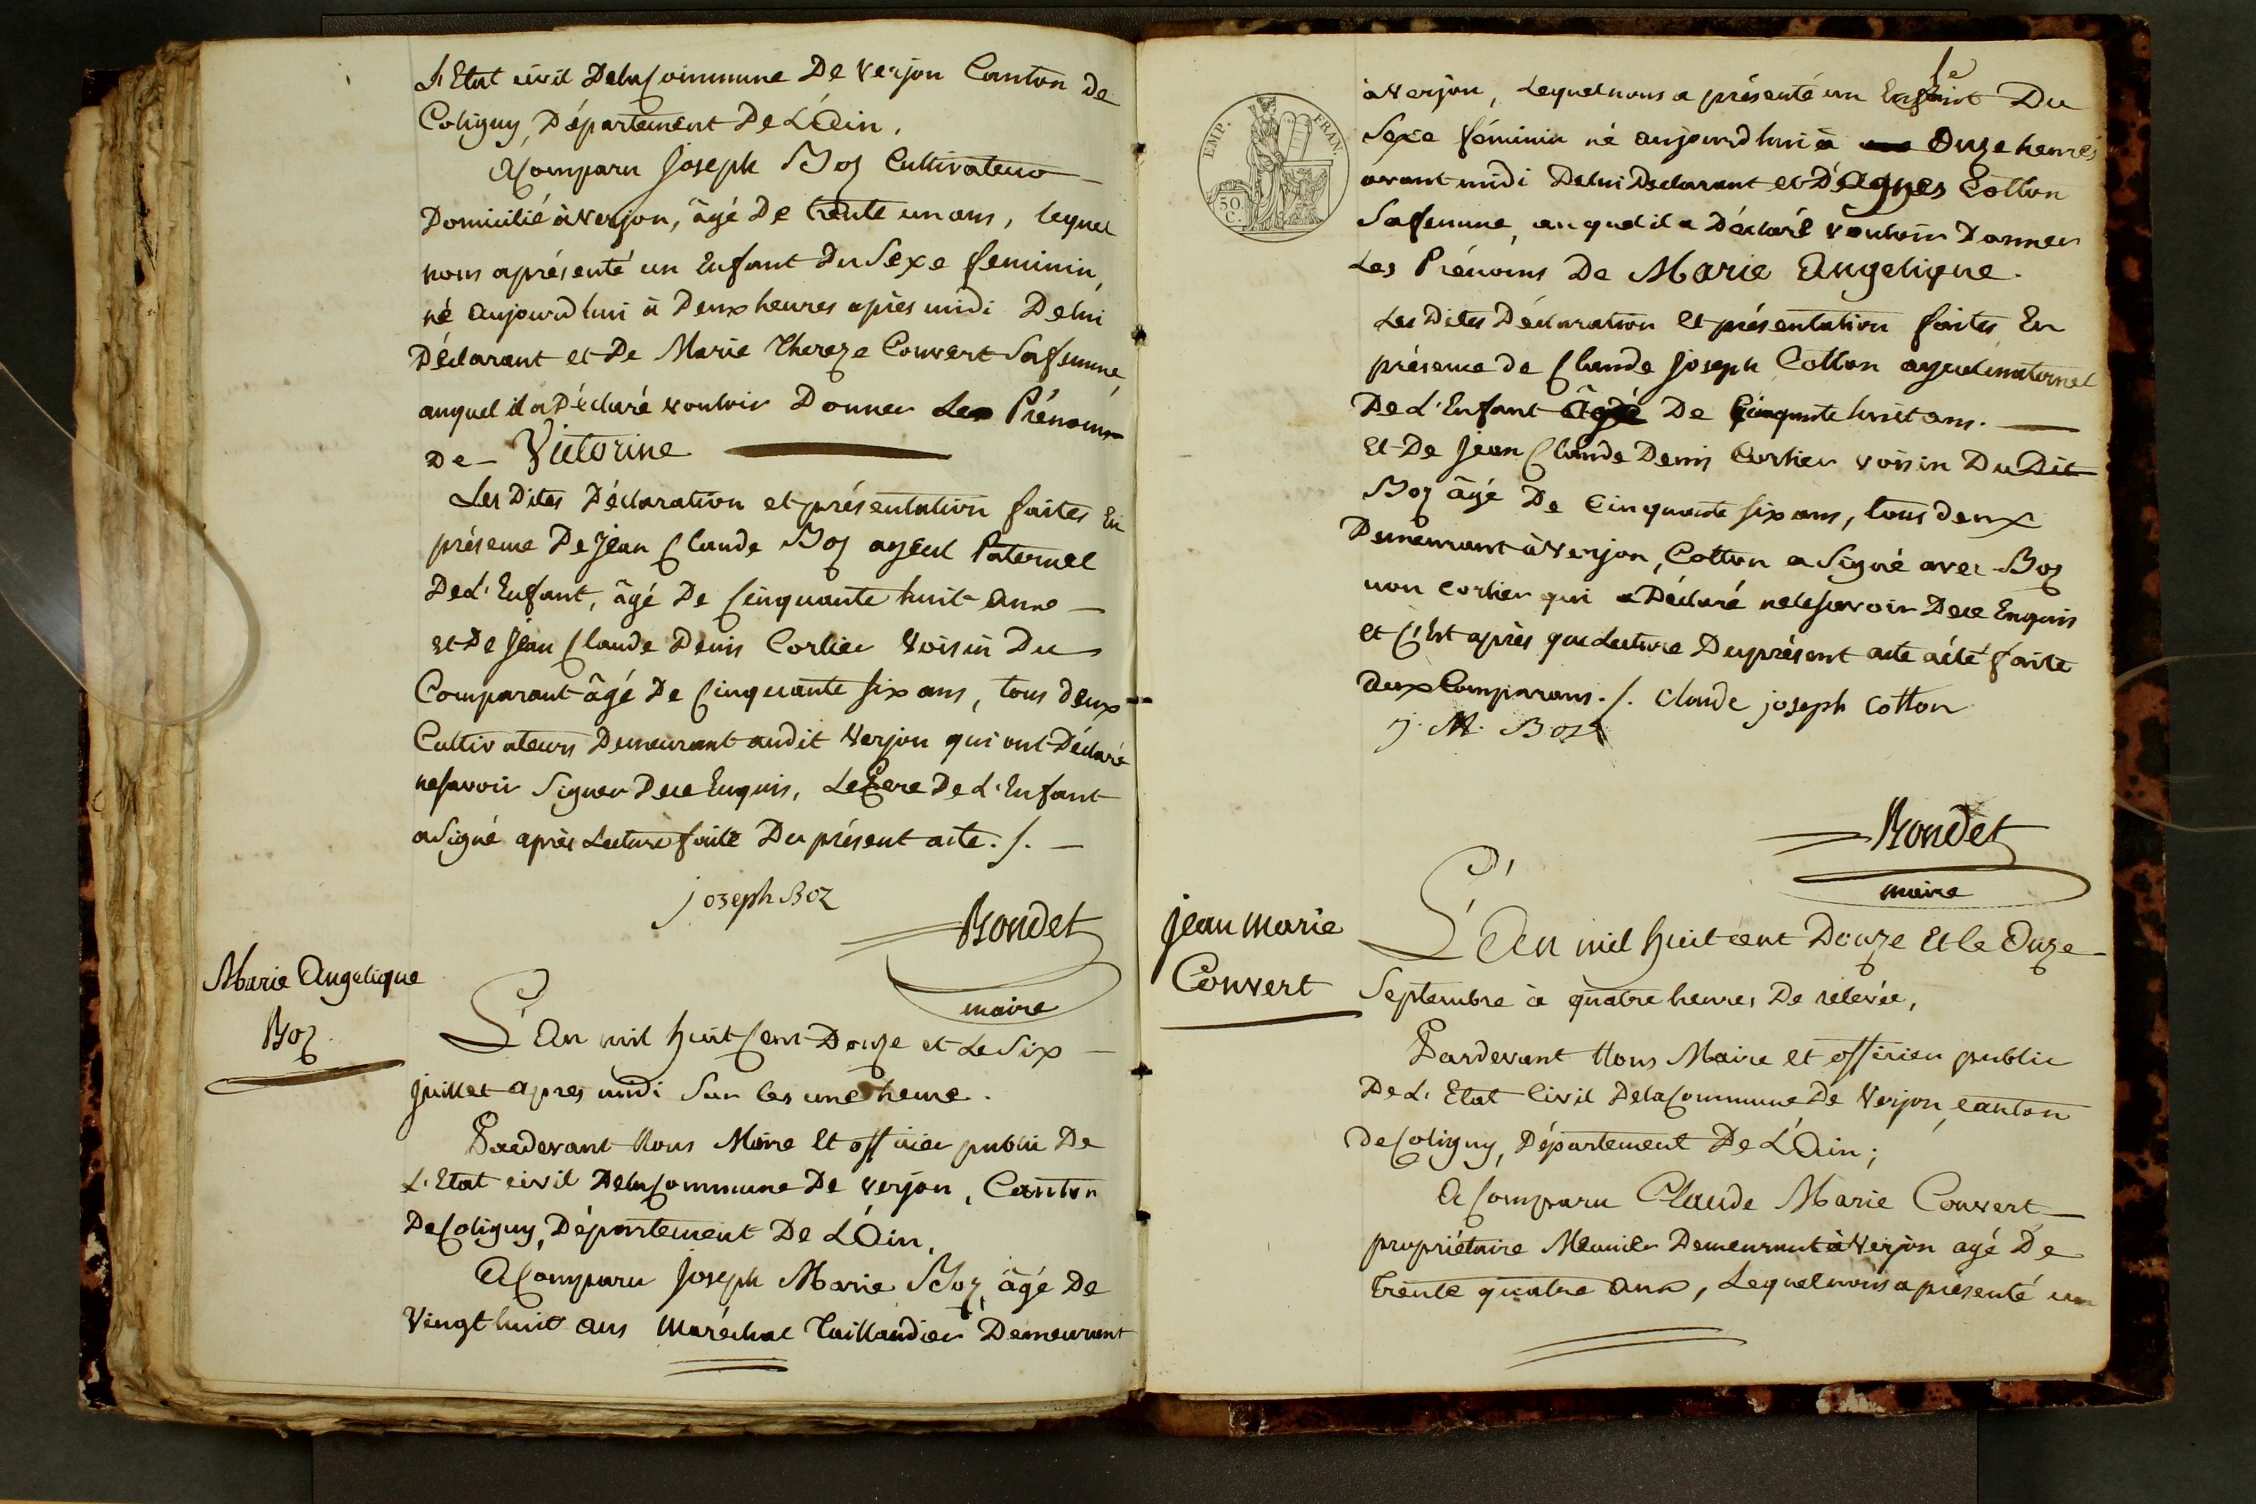 L'Etat civil De la Commune De Verjon Canton de
Coligny, Département De L'Ain.
A Comparu Joseph Boz Cultivateur
Domicilié à Verjon, âgé De trente un ans, lequel
nous a présenté un Enfant Du Sexe feminin,
né aujourd'hui à Deux heures après midi De lui
Déclarant et De Marie Thereze Convert Sa femme,
auquel il a Déclaré vouloir Donner Les Prénoms
De - Victorine
Les Dites Déclaration et présentation faites En
présence De Jean Claude Boz ayeul Paternel
De L'Enfant, âgé De Cinquante huit Ans
et De Jean Claude Denis Corlier Voisin Du
Comparant âgé De Cinquante six ans, tous deux
Cultivateurs Demeurant audit Verjon qui ont Déclaré
ne savoir Signer De ce Enquis, Le Pere De L'Enfant
a Signé après Lecture faite Du présent acte. /.
jozeph Boz
Bondet
maire
Marie Angelique
Boz
L'An mil huit Cent Douze et Le Six
Juillet apres midi Sur les une heure.
Pardevant Nous Maire Et officier public De
L'Etat civil De la Commune De Verjon, Canton
De Coligny, Département De L'Ain,
A Comparu Joseph Marie Boz, âgé De
Vingt huit ans Maréchal Taillandier Demeurant
EMP. FRAN.
50.
C.
à Verjon, Lequel nous a présenté un Enfant Du
Sexe féminin né aujourd'hui à Onze heures
avant midi De lui Déclarant et D'Agnes Cotton
Sa femme, auquel il a Déclaré vouloir Donner
Les Prénoms De Marie Angelique.
Les Dites Déclaration Et présentation faites En
présence de Claude Joseph Cotton ayeul maternel
De L'Enfant âgé De Cinquante huit ans.
Et De Jean Claude Denis Corlier voisin Du Dit
Boz âgé De Cinquante six ans, tous deux
Demeurant à Verjon, Cotton a Signé avec Boz
non Corlier qui a Déclaré ne le savoir De ce Enquis
et C'Est après que Lecture Du présent acte a été faite
aux Comparans. /. Claude joseph Cotton
j. M. Boz
Bondet
maire
Jean Marie
Convert
L'An mil huit cent Douze Et le Onze
Septembre à quatre heures De relevée,
Pardevant Nous Maire et officier public
De L'Etat Civil De la Commune De Verjon, canton
de Coligny, Département De L'Ain;
A Comparu Claude Marie Convert
propriétaire Meunier Demeurant à Verjon agé De
trente quatre Ans, Lequel nous a présenté un